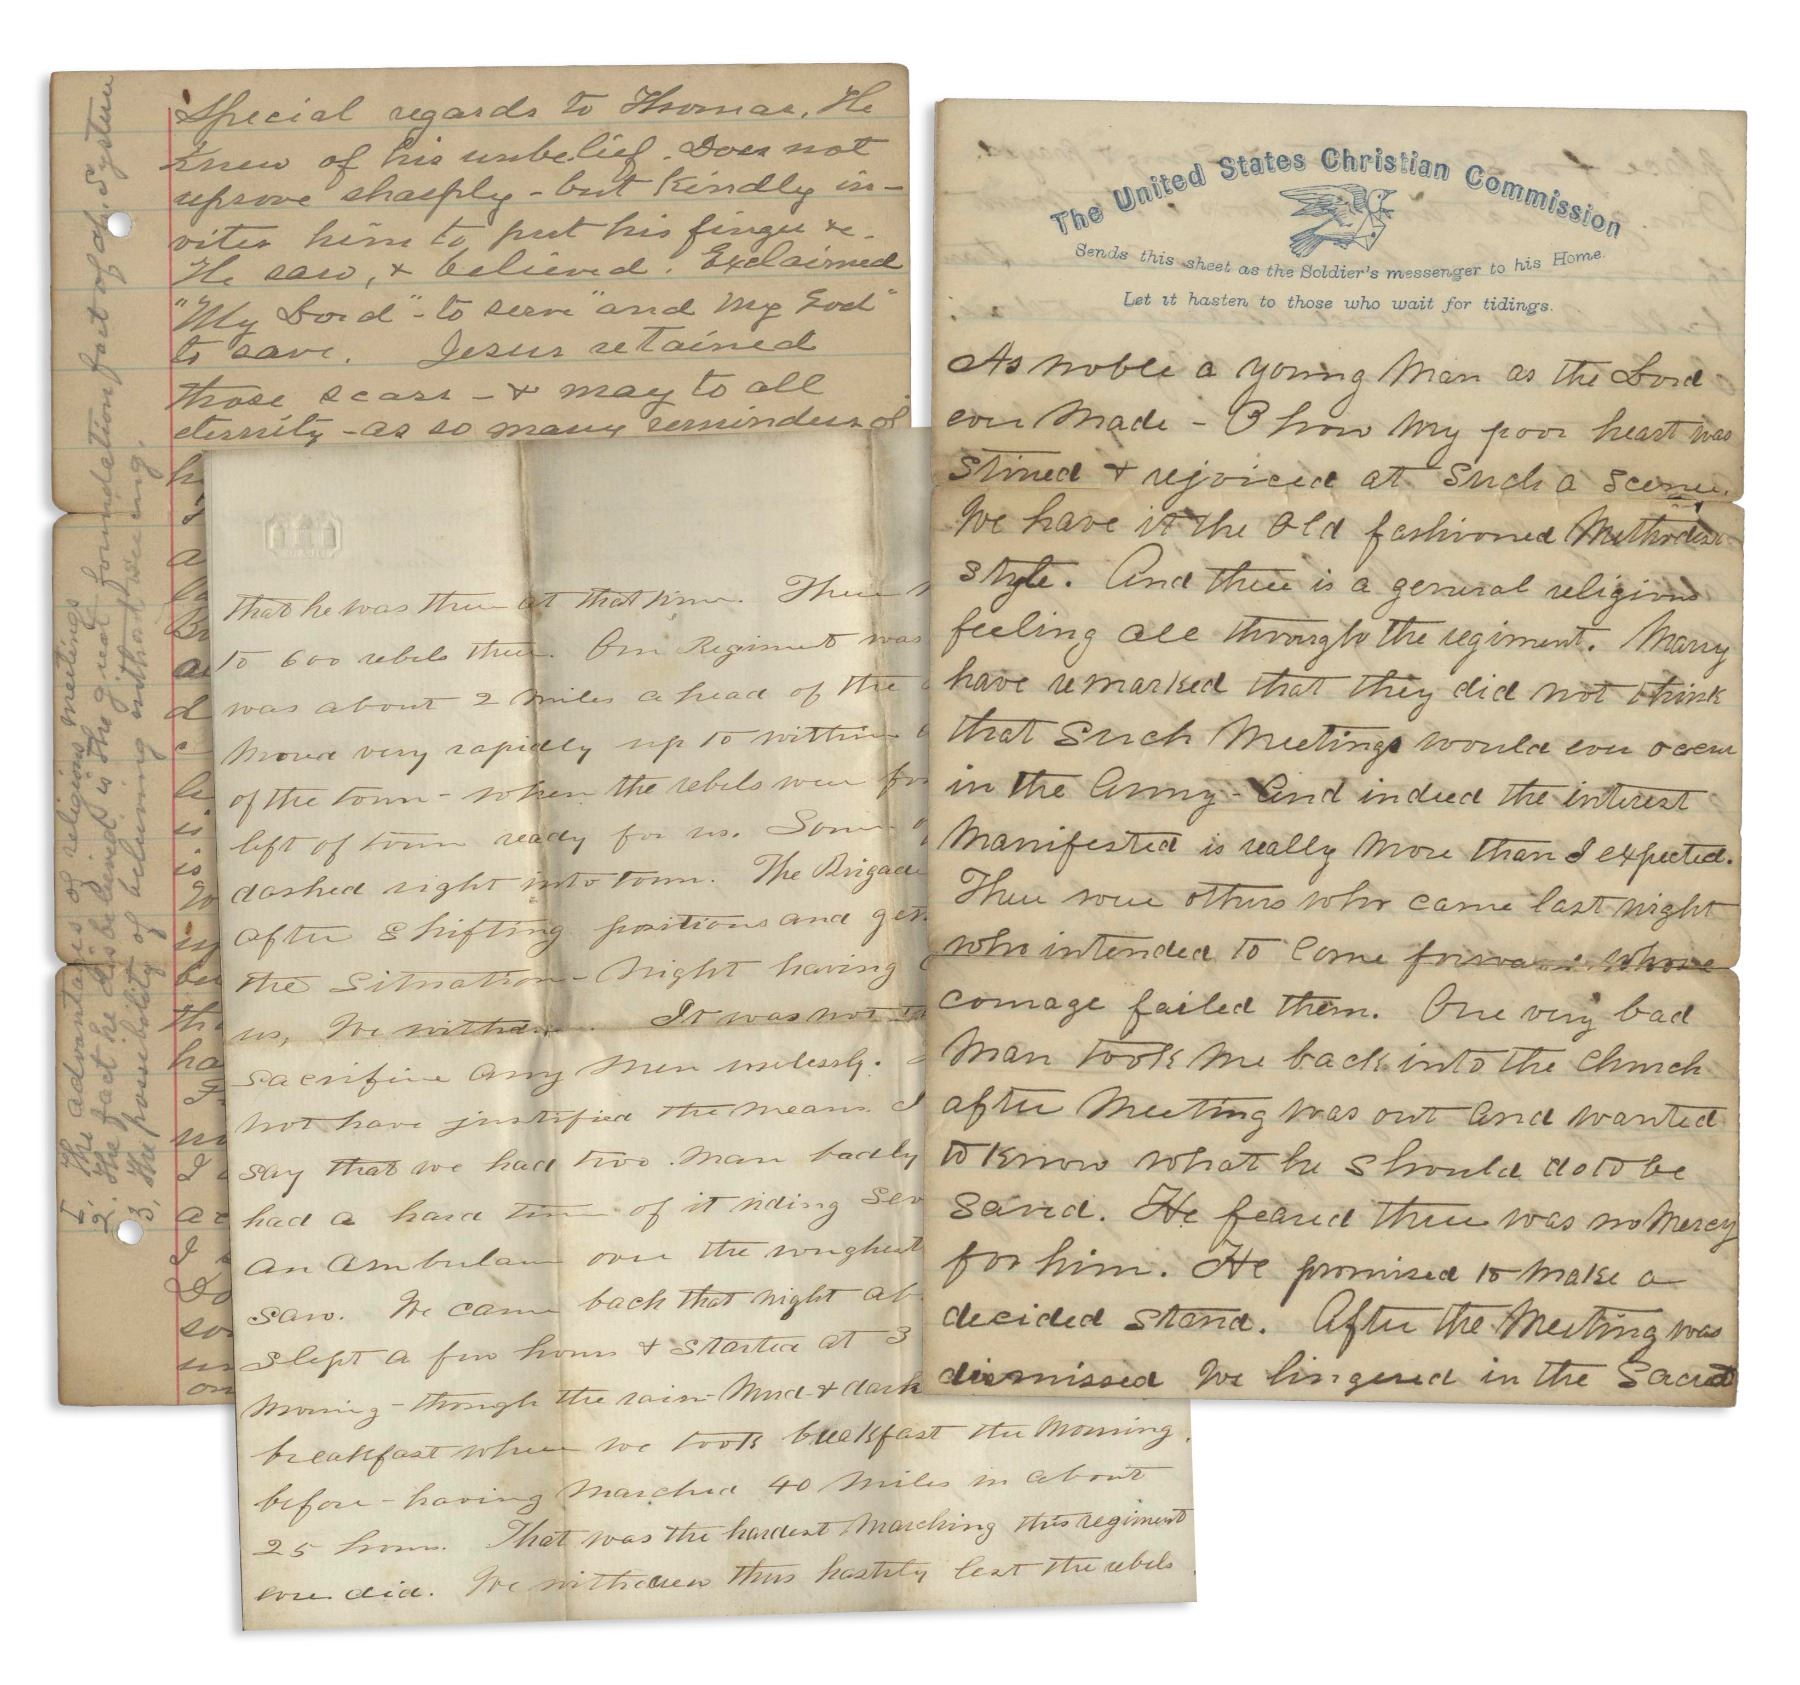 Special regards to Thomas. He
knew of his unbelief. Does not
reprove sharply - but kindly in-
vites him to put his finger &c.
He saw, & believed. Exclaimed
"My Lord" - to serve "and My God"
to save. Jesus retained
those scars - & may to all
eternity - as so many reminders of
1. The advantages of religious meetings
2. The fact he disbelieved is the great foundation fact of of System
3. The possibility of believing without seeing.
that he was there at that time. There
to 600 rebels there. Our Regiment was
was about 2 miles ahead of the
moved very rapidly up to within
of the town - when the rebels were
left of town ready for us. Some
dashed right into town. The Brigade
after shifting positions and
the Situation - Night having
us, We withdrew. It was not
sacrifice any men uselessly.
not have justified the means. I
say that we had two man badly
had a hard time of it riding
an ambulance over the roughest
saw. We came back that night
slept a few hours & started at 3
morning - through the rain - Mud & dark
breakfast where we took breakfast the morning
before - having marched 40 miles in about
25 hours. That was the hardest marching this regiment
ever did. We withdrew thus hastily lest the rebels
The United States Christian Commission
Sends this sheet as the Soldier's messenger to his Home.
Let it hasten to those who wait for tidings.
As noble a young man as the Lord
ever made - O how my poor heart was
stirred & rejoiced at such a scene.
We have it the old fashioned Methodist
style. And there is a general religious
feeling all through the regiment. Many
have remarked that they did not think
that such meetings would ever occur
in the Army - And indeed the interest
manifested is really more than I expected.
There were others who came last night
who intended to come forward whose
courage failed them. One very bad
man took me back into the church
after meeting was out and wanted
to know what he should do to be
saved. He feared there was no mercy
for him. He promised to make a
decided stand. After the Meeting was
dismissed we lingered in the Sacred